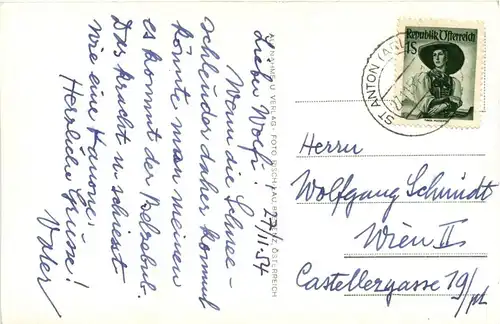 27/11.54
Lieber Wolfi!
Wenn die Schnee-
schleuder daher kommt
könnte man meinen
es kommt der Belzebub.
Das kracht u. schiesst
wie eine Kanone.
Herzliche Grüsse!
Vater
VERLAG FOTO
ÖSTERREICH
Republik Österreich
1S
ST ANTON
Herrn
Wolfgang Schmidt
Wien II
Castellergasse 19/